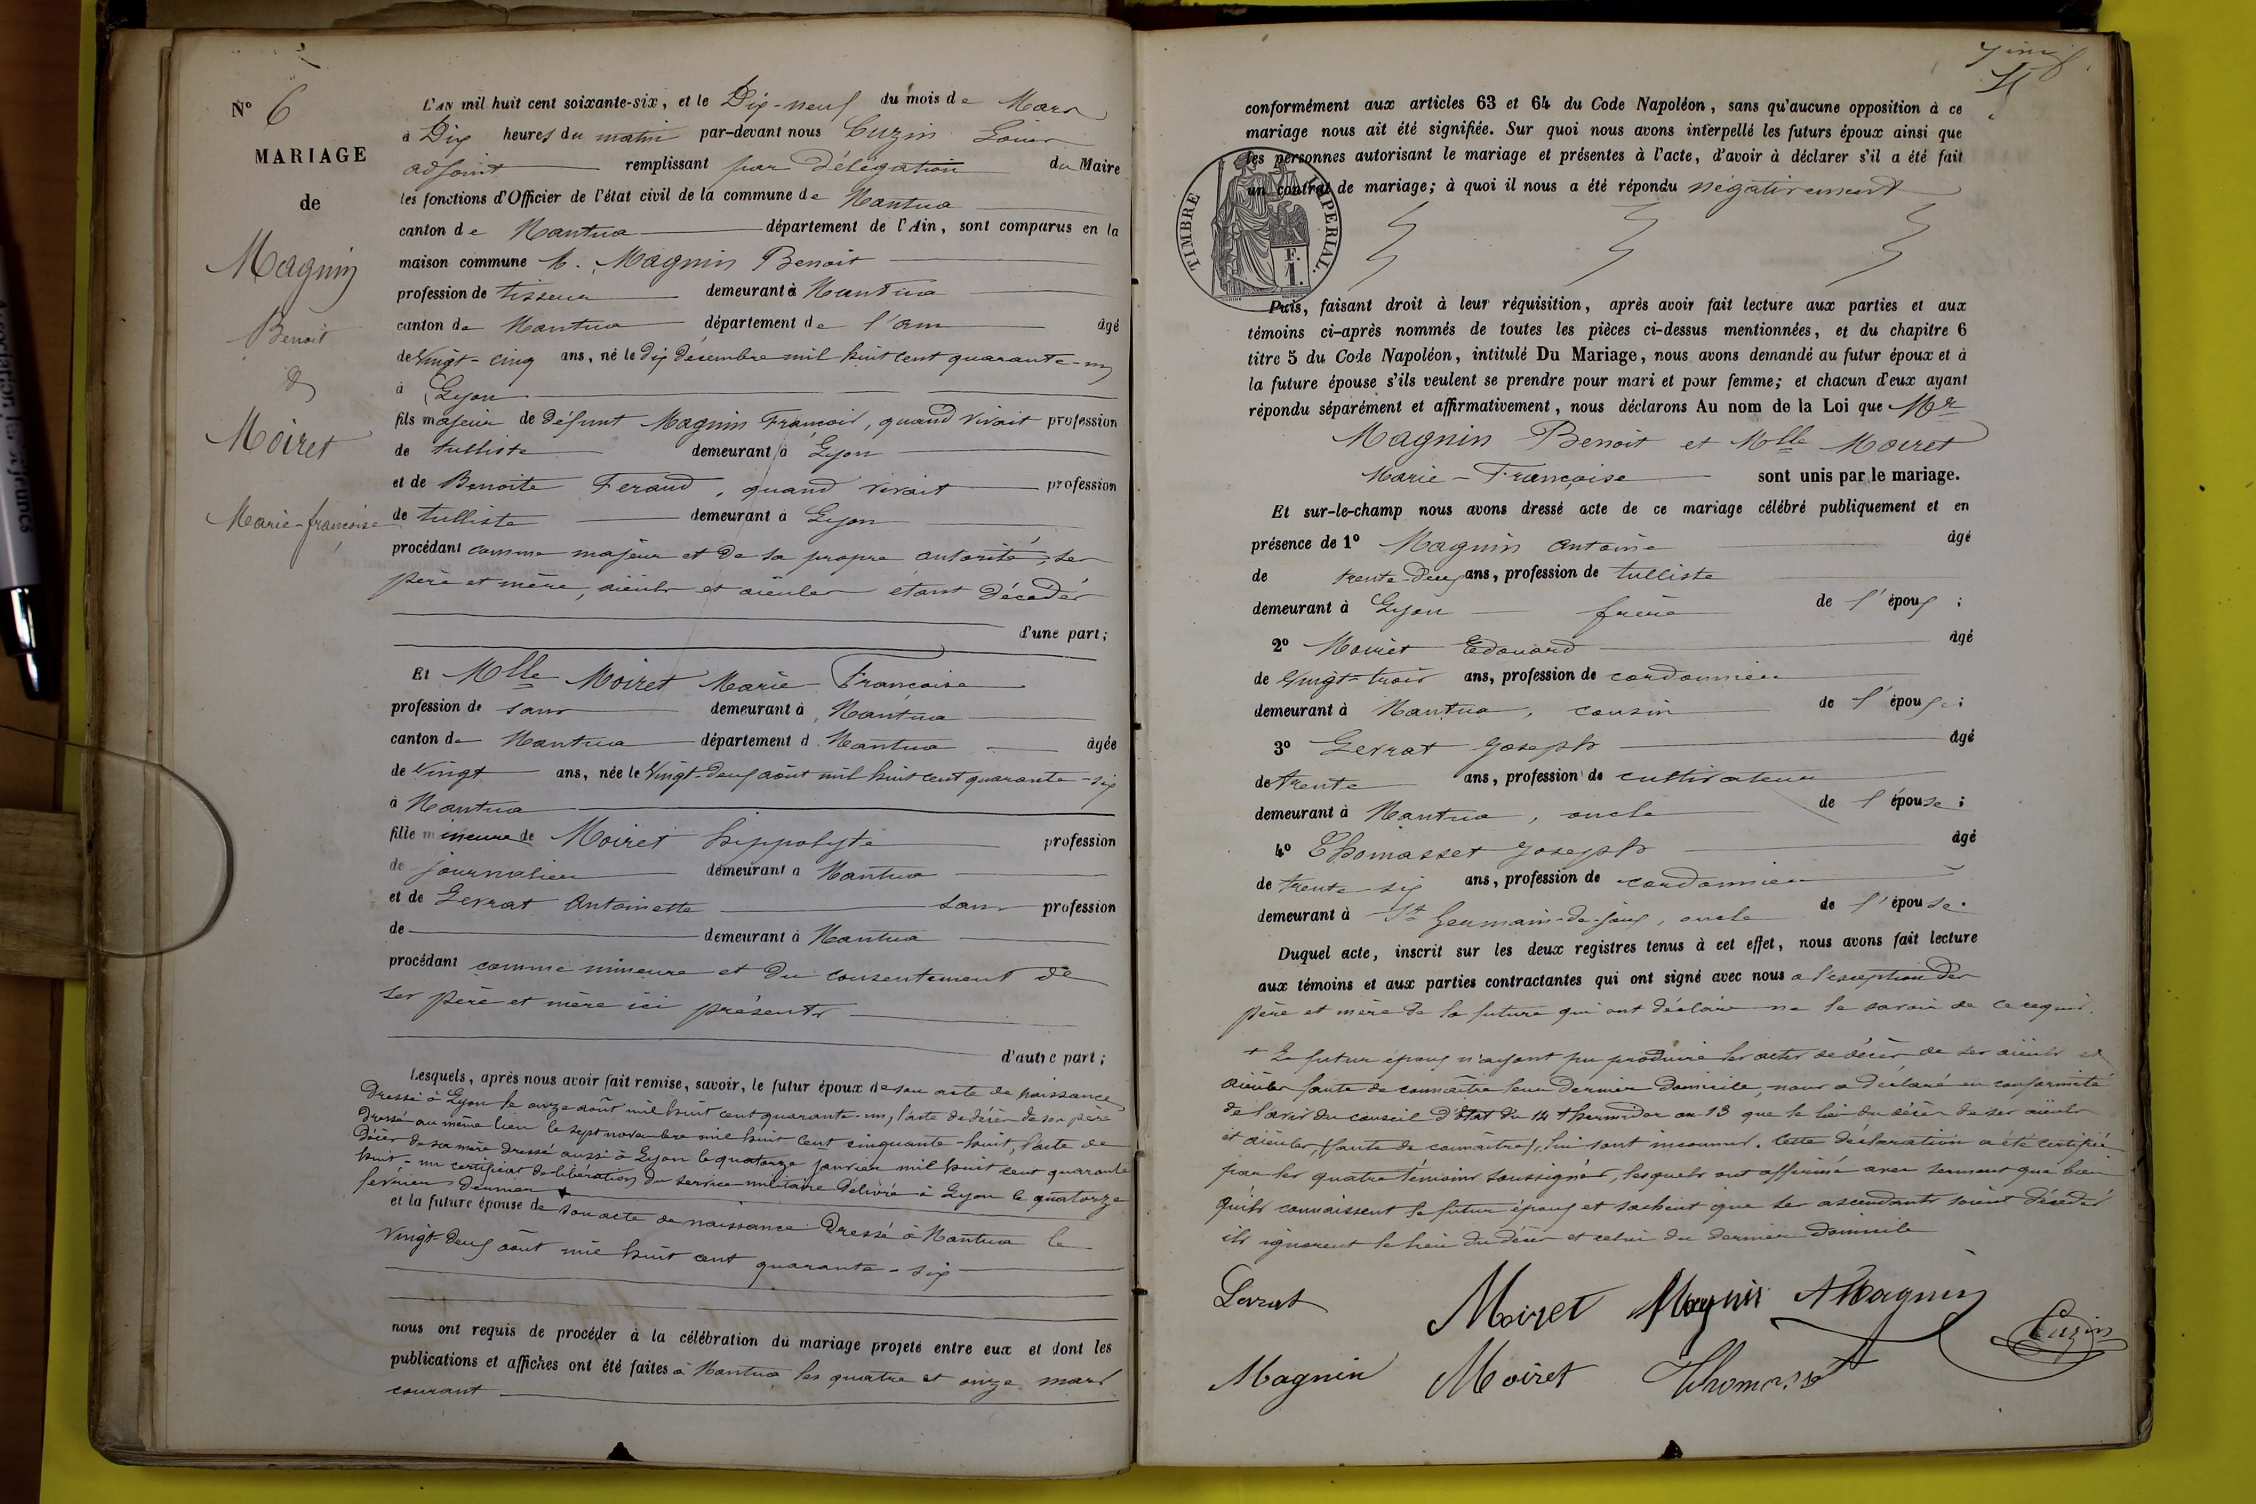 N° 6
MARIAGE
de
Magnin
Benoit
&
Moiret
Marie-françoise
L'AN mil huit cent soixante-six, et le Dix-neuf du mois de Mars
à Dix heures du matin par-devant nous Cuzin Louis
adjoint remplissant par délégation du Maire
les fonctions d'Officier de l'état civil de la commune de Nantua
canton de Nantua département de l'Ain, sont comparus en la
maison commune M. Magnin Benoit
profession de tisseur demeurant à Nantua
canton de Nantua département de l'ain âgé
de Vingt-cinq ans, né le dix décembre mil huit cent quarante-un
à Lyon
fils majeur de défunt Magnin François, quand vivait profession
de tulliste demeurant à Lyon
et de Benoite Feraud, quand vivait profession
de tulliste demeurant à Lyon
procédant comme majeur et de sa propre autorité, ses
père et mère, aïeuls et aïeules étant décédés
d'une part;
Et Mlle Moiret Marie Françoise
profession de sans demeurant à Nantua
canton de Nantua département d Nantua âgée
de Vingt ans, née le Vingt-deux août mil huit cent quarante-six
à Nantua
fille mineure de Moiret hippolyte profession
de journalier demeurant à Nantua
et de Levrat Antoinette sans profession
de demeurant à Nantua
procédant comme mineure et du consentement de
ses père et mère ici présents
d'autre part;
Lesquels, après nous avoir fait remise, savoir, le futur époux de son acte de naissance
dressé à Lyon le onze août mil huit cent quarante-un, l'acte de décès de son père
dressé au même lieu le sept novembre mil huit cent cinquante-huit, l'acte de
décès de sa mère dressé aussi à Lyon le quatorze janvier mil huit cent quarante
huit - un certificat de libération du service militaire délivré à Lyon le quatorze
février dernier +
et la future épouse de son acte de naissance dressé à Nantua le
Vingt-deux août mil huit cent quarante-six
nous ont requis de procéder à la célébration du mariage projeté entre eux et dont les
publications et affiches ont été faites à Nantua les quatre et onze mars
courant
conformément aux articles 63 et 64 du Code Napoléon, sans qu'aucune opposition à ce
mariage nous ait été signifiée. Sur quoi nous avons interpellé les futurs époux ainsi que
les personnes autorisant le mariage et présentes à l'acte, d'avoir à déclarer s'il a été fait
un contrat de mariage; à quoi il nous a été répondu négativement
TIMBRE IMPERIAL.
F.
1.
Puis, faisant droit à leur réquisition, après avoir fait lecture aux parties et aux
témoins ci-après nommés de toutes les pièces ci-dessus mentionnées, et du chapitre 6
titre 5 du Code Napoléon, intitulé Du Mariage, nous avons demandé au futur époux et à
la future épouse s'ils veulent se prendre pour mari et pour femme; et chacun d'eux ayant
répondu séparément et affirmativement, nous déclarons Au nom de la Loi que Mr
Magnin Benoit et Mlle Moiret
Marie-Françoise sont unis par le mariage.
Et sur-le-champ nous avons dressé acte de ce mariage célébré publiquement et en
présence de 1° Magnin Antoine âgé
de trente-deux ans, profession de tulliste
demeurant à Lyon frère de l'époux;
2° Moiret Edouard âgé
de Vingt-trois ans, profession de cordonnier
demeurant à Nantua, cousin de l'épouse;
3° Levrat Joseph âgé
de trente ans, profession de cultivateur
demeurant à Nantua, oncle de l'épouse;
4° Thomasset Joseph âgé
de trente-six ans, profession de cordonnier
demeurant à St Germain-de-joux, oncle de l'épouse.
Duquel acte, inscrit sur les deux registres tenus à cet effet, nous avons fait lecture
aux témoins et aux parties contractantes qui ont signé avec nous à l'exception des
père et mère de la future qui ont déclaré ne le savoir de ce requis.
+ Le futur époux n'ayant pu produire les actes de décès de ses aïeuls et
aïeules faute de connaître leur dernier domicile, nous a déclaré en conformité
de l'avis du conseil d'état du 14 thermidor an 13 que le lieu du décès de ses aïeuls
et aïeules, (faute de connaître), lui sont inconnus. Cette déclaration a été certifiée
par les quatre témoins soussignés, lesquels ont affirmé avec serment que bien
qu'ils connaissent le futur époux et sachent que ses ascendants soient décédés
ils ignorent le lieu du décès et celui du dernier domicile
Levrat Moiret Magnin A Magnin
Cuzin
Magnin Moiret Thomasset